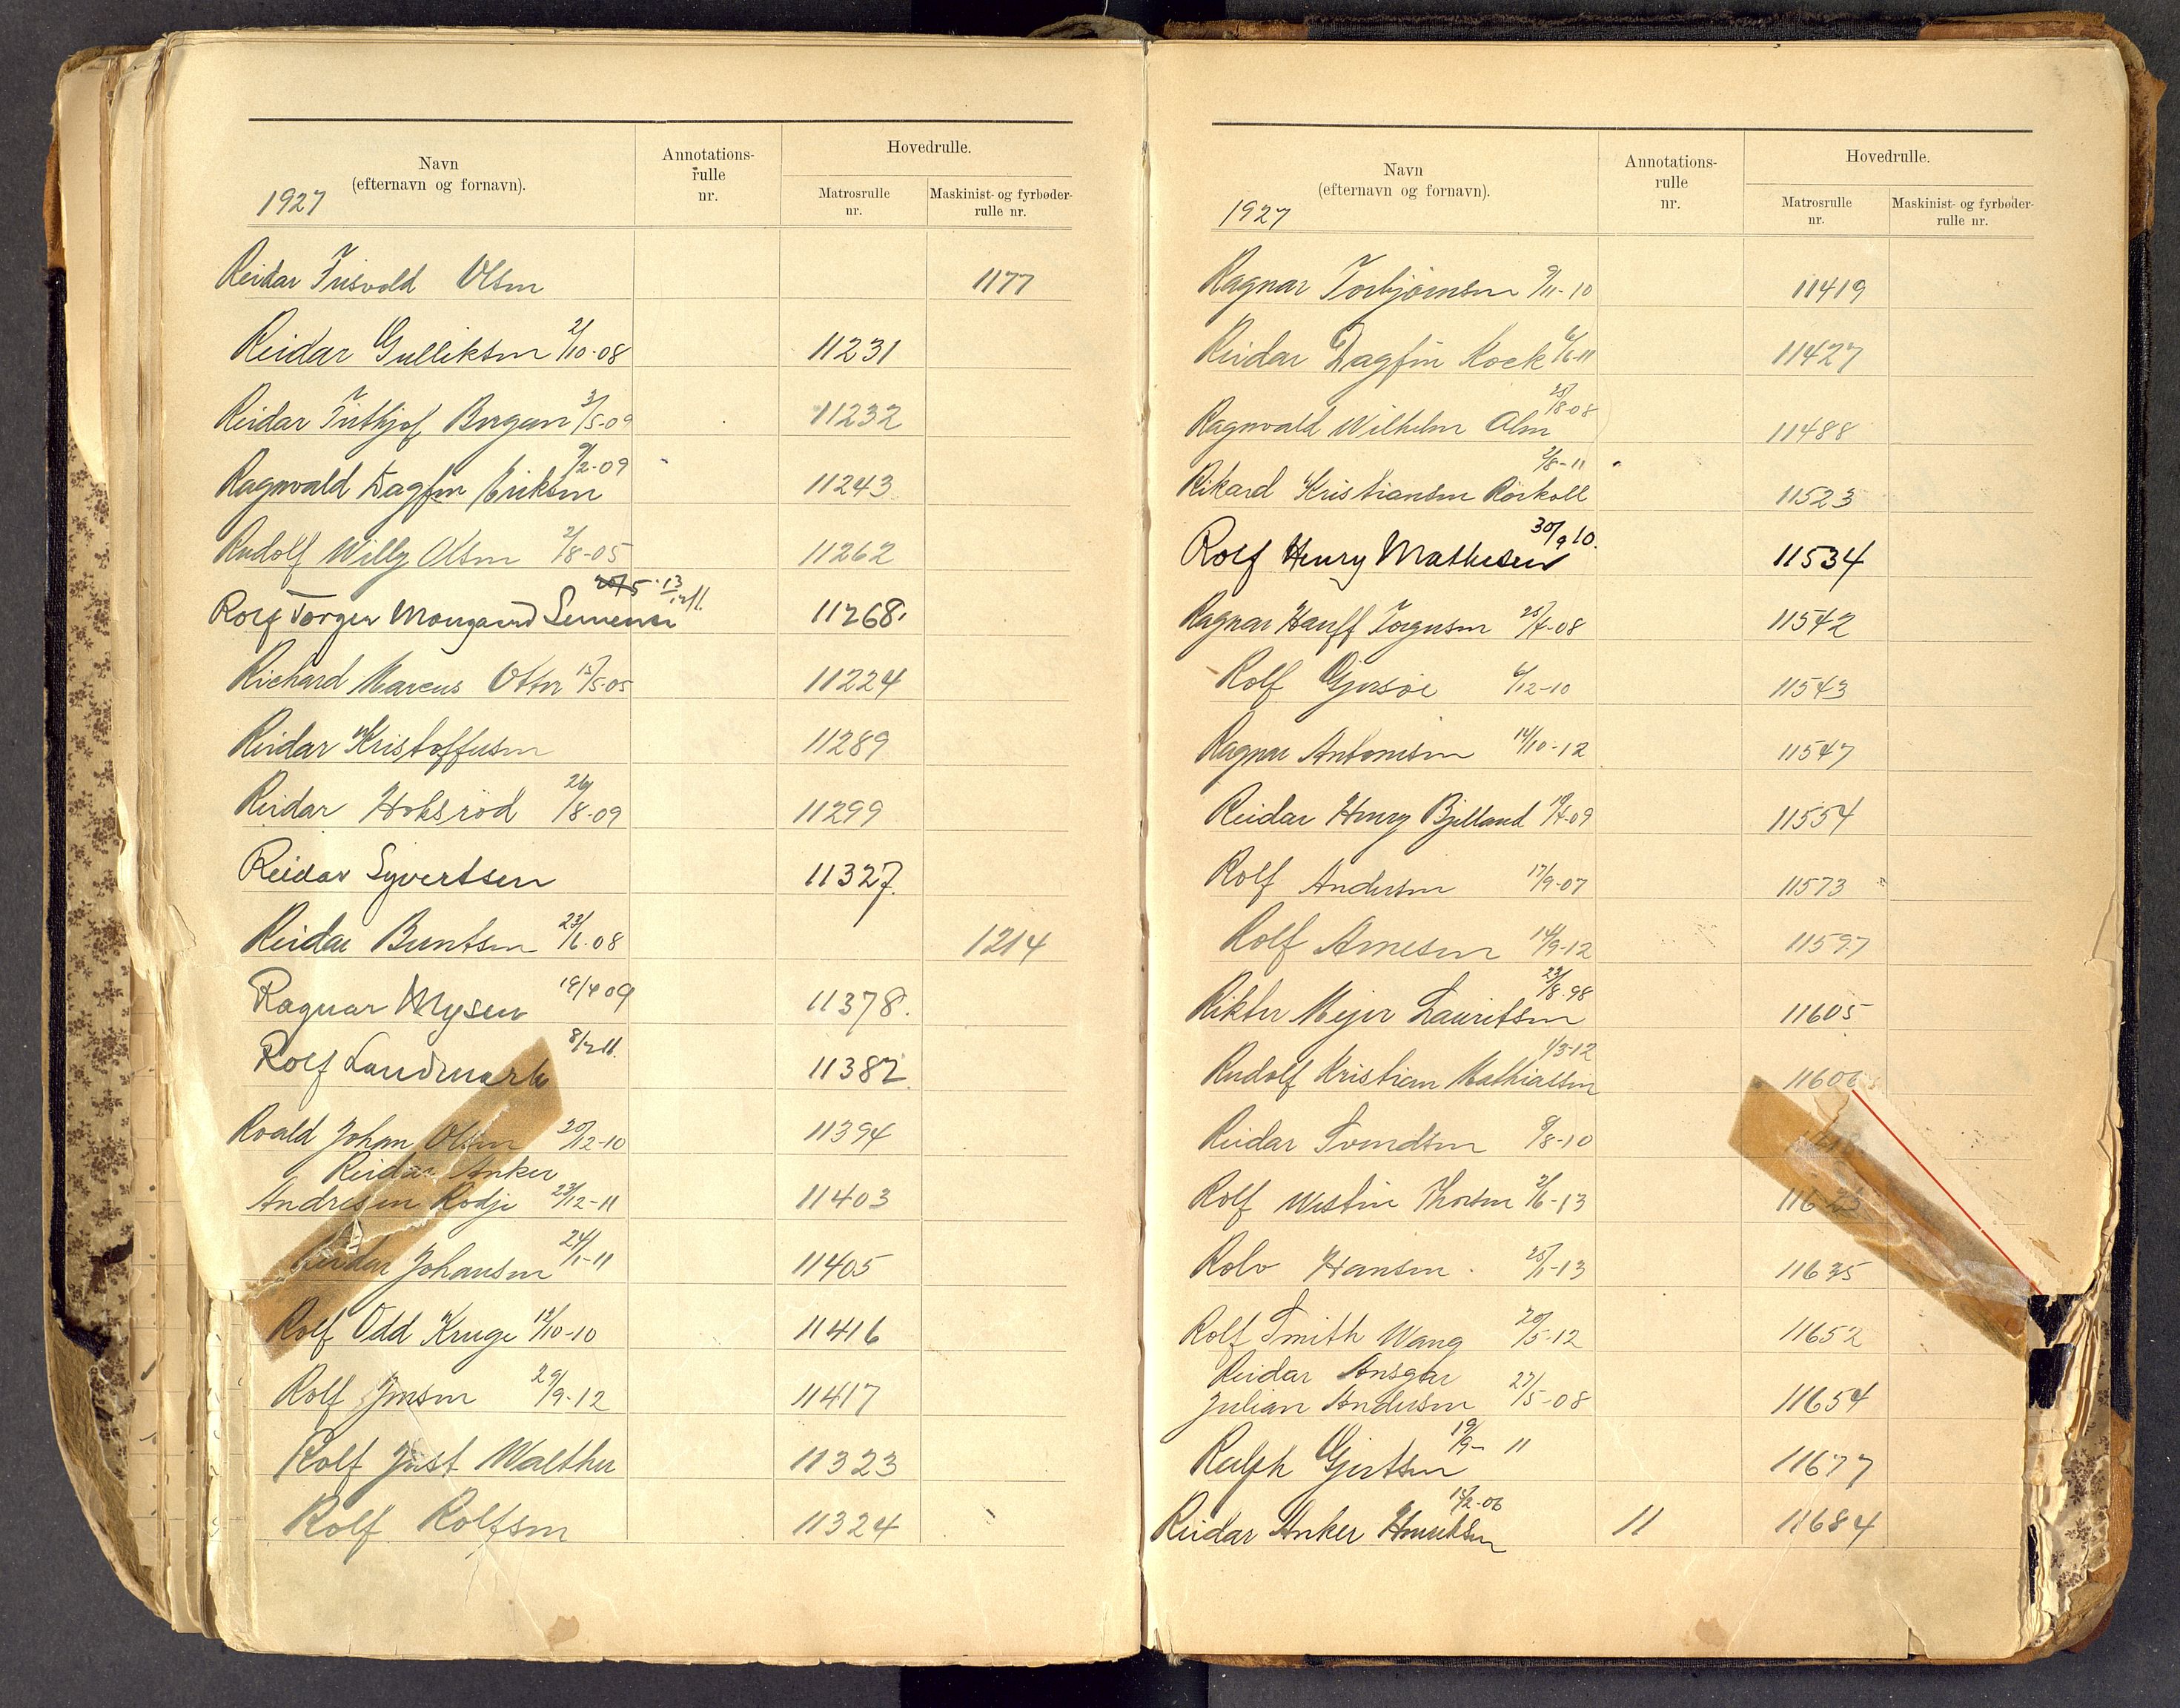 Navn
(efternavn og fornavn).
1927
Annotations-
rulle
nr.
Hovedrulle.
Matrosrulle
nr.
Maskinist- og fyrbøder-
rulle nr.
Reidar Frisvold Olsen 1177
Reidar Gulliksen 2/10-08 11231
Reidar Frithjof Bergan 3/5-09 11232
9/2-09
Ragnvald Dagfin Eriksen 11243
Rudolf Willy Olsen 2/8-05 11262
Rolf Torger 11268
Richard Marcus 15/5-05 11224
Reidar Kristoffersen 11289
Reidar Hoksrød 26/8-09 11299
Reidar Syvertsen 11327
Reidar Berntsen 23/6-08 1214
Ragnar Mysen 19/4 09 11378.
Rolf Landmark 11382
Roald Johan Olsen 20/12-10 11394
Reidar Anker
Andresen Rødje 23/12-11 11403
Reidar Johansen 24/1-11 11405
Rolf Odd Kruge 12/10-10 11416
Rolf Jensen 29/9-12 11417
Rolf Just Walther 11323
Rolf Rolfsen 11324
Navn
(efternavn og fornavn).
1927
Annotations-
rulle
nr.
Hovedrulle.
Matrosrulle
nr.
Maskinist- og fyrbøder-
rulle nr.
Ragnar Torbjørnsen 9/11-10 11419
Reidar Dagfin Kock 6/6-11 11427
25/8-08
Ragnvald Wilhelm Alm 11488
2/8-11
Rikard Kristiansen Rørkoll 11523
30/9 10.
Rolf Henry Mathisen 11534
Ragnar Hauff Torgersen 25/4-08 11542
Rolf Gjersøe 6/12-10 11543
Ragnar Antonisen 14/10-12 11547
Reidar Henry Bjelland 19/4-09 11554
Rolf Andersen 17/9-07 11573
Rolf Arnesen 14/9-12 11597
23/8-98
Rikter Mejer Lauritsen 11605
1/3-12
Rudolf Kristian Mathiassen 11606
Reidar Svendsen 9/8-10
Rolf Westin Thorsen 2/6-13 11623
Rolv Hansen 25/11-13 11635
Rolf Smith Wang 20/5-12 11652
Reidar Ansgar
Julian Andersen 27/5-08 11654
19/9-11
Ralph Gjertsen 11677
15/2-06
Reidar Anker Henriksen 11 11684